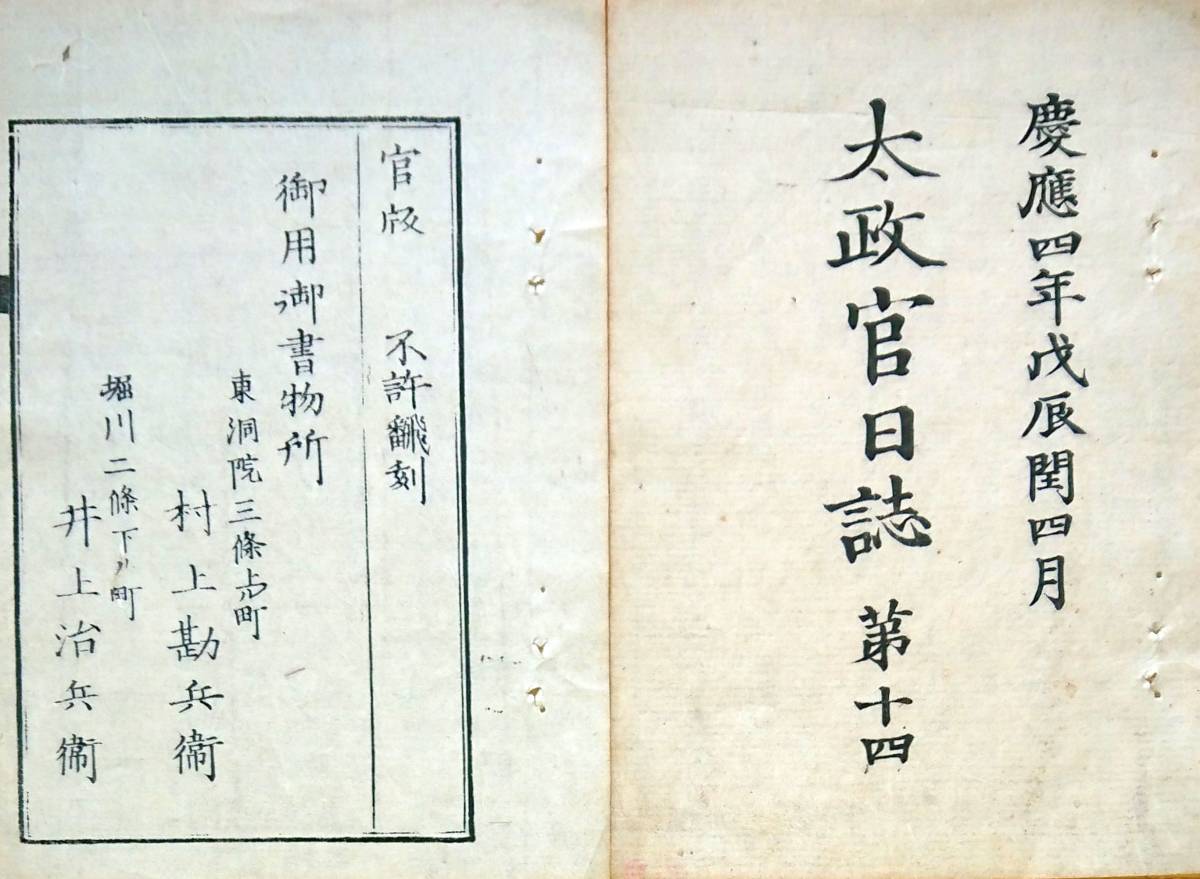 慶應四年戊辰閏四月
太政官日誌 第十四
官版 不許飜刻
御用御書物所
東洞院三條上ル町
村上勘兵衞
堀川二條下ル町
井上治兵衞